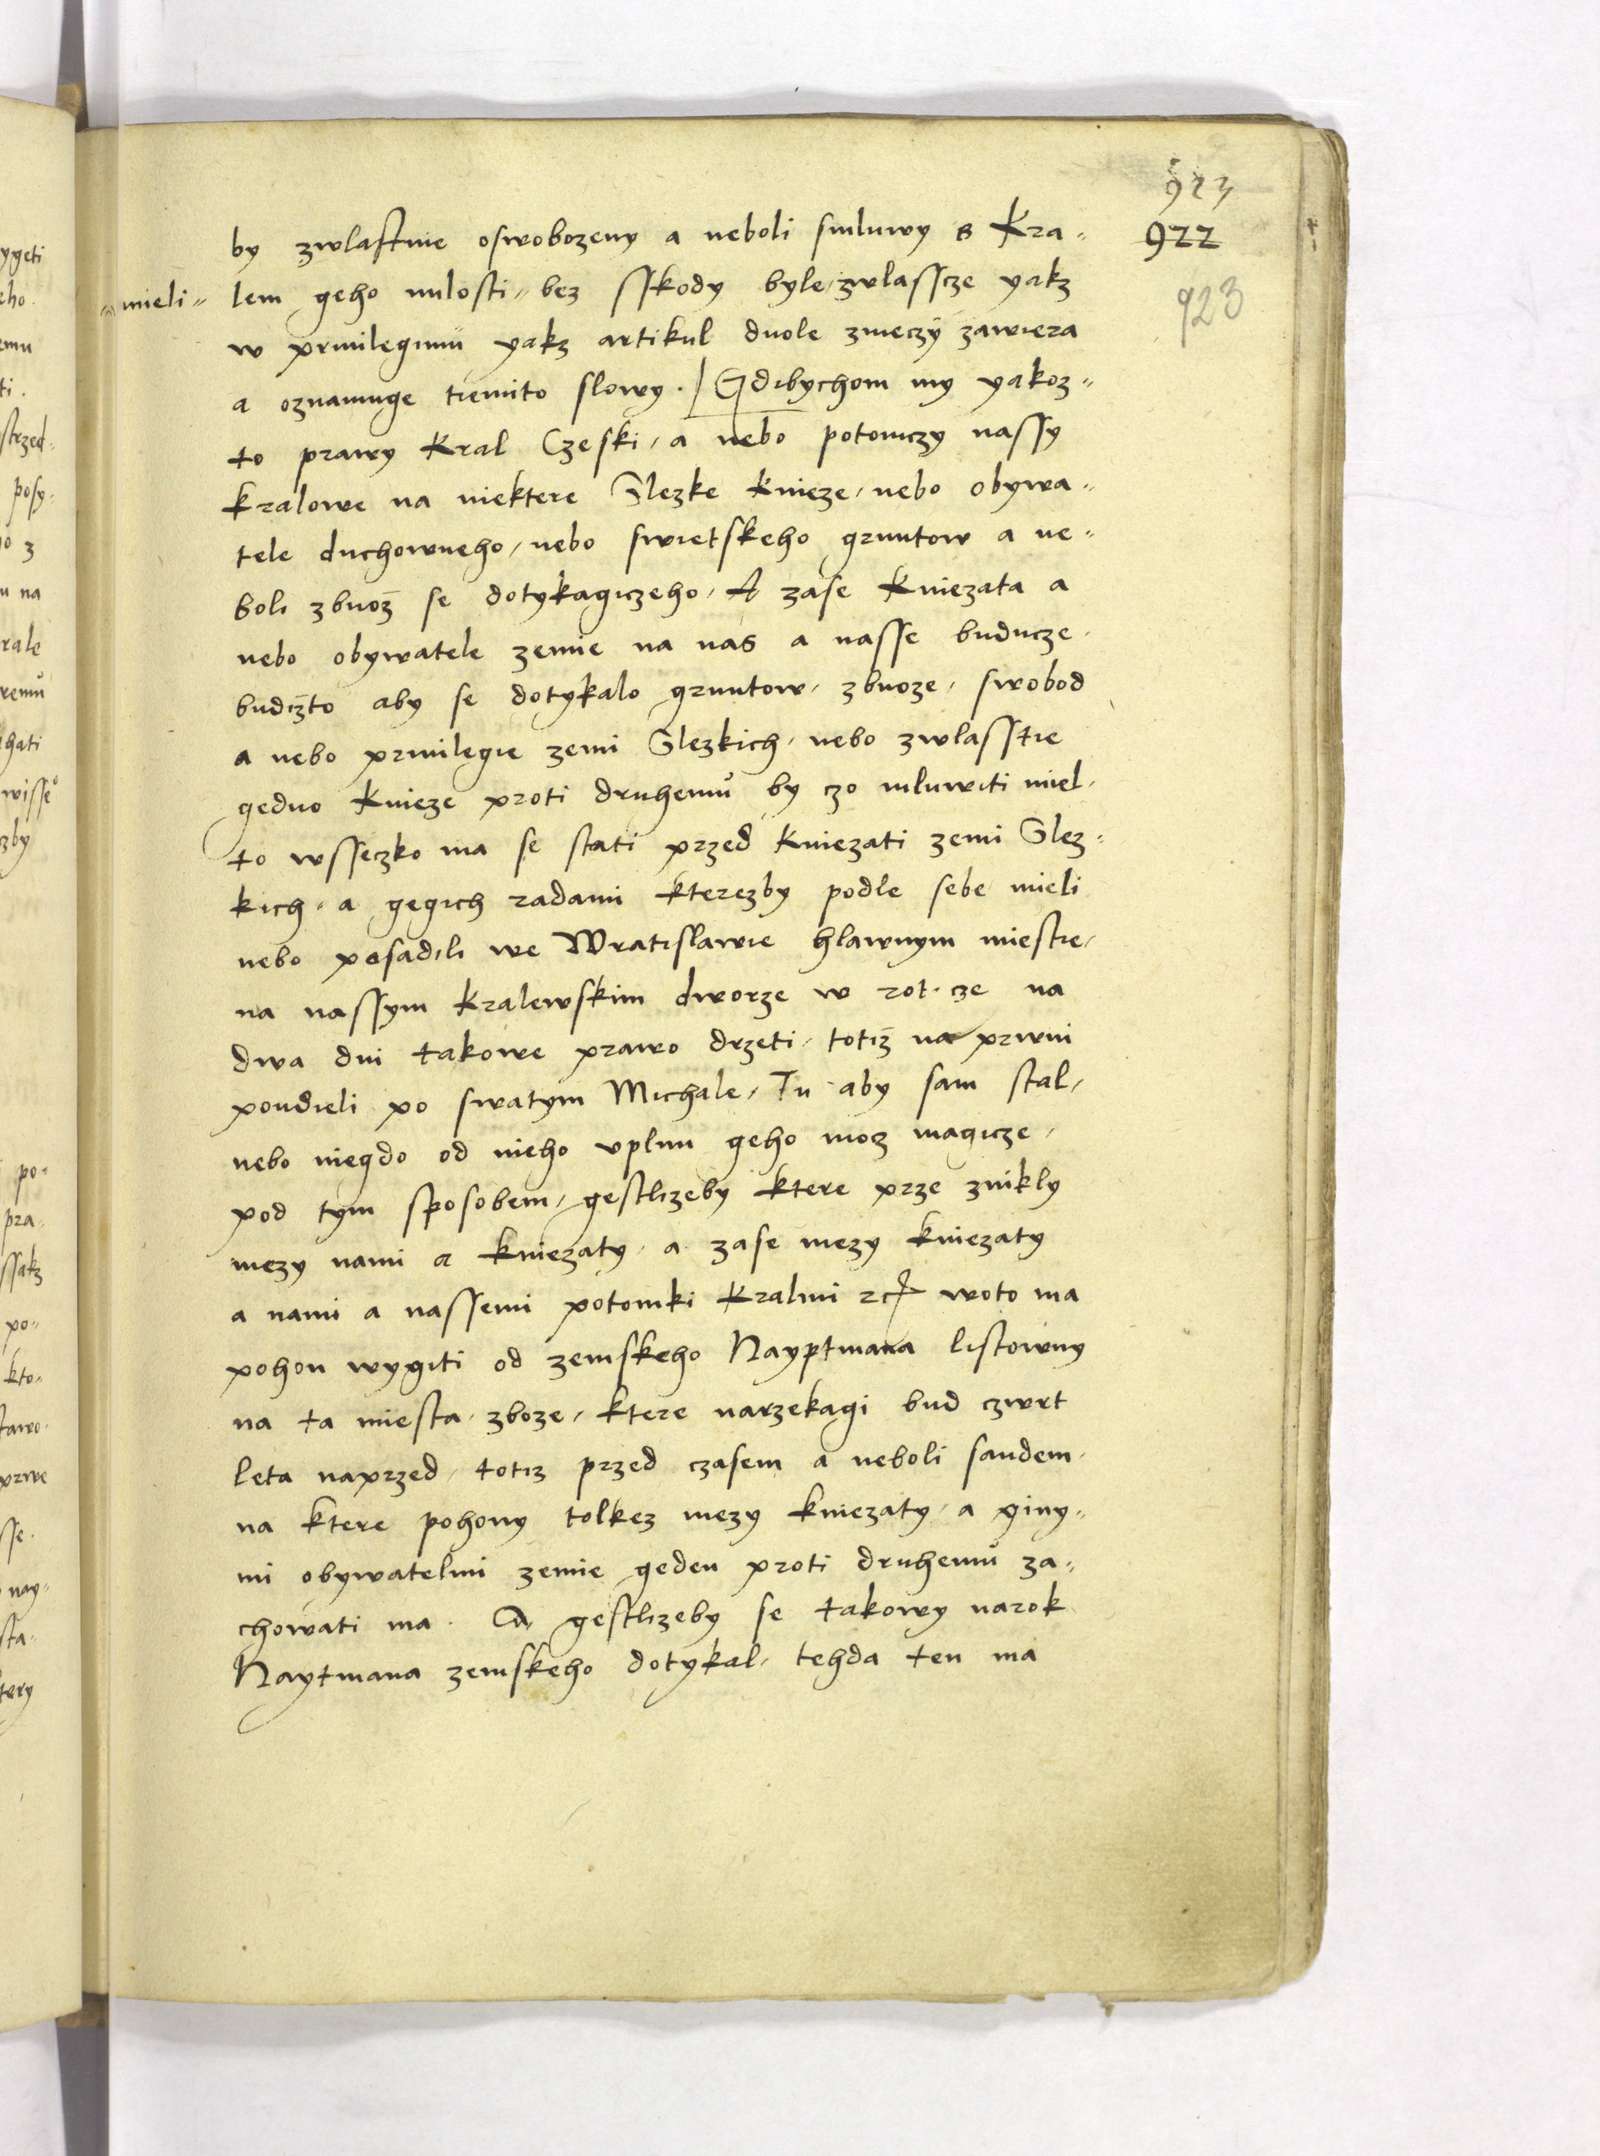 923
922
923
by zwlastnie oswobozeny a neboli smluwy s Kra-
mieli lem geho milosti bez sskody byle zwlasscze yakz
w priuilegiumu yakz artikul dole zawiera
a oznamuge tiemito slowy. Gdibychom my yakoz-
to prawy Kral Czeski, a nebo potomczy nassy
kralowe na niektere Slezke Knieze, nebo obywa-
tele duchowneho, nebo swietskeho gruntow a ne-
boli zbuoz se dotykagiczeho, A zase Kniezata a
nebo obywatele zemie na nas a nasse buducze
budizto aby se dotykalo gruntow, zbuoze, swobod
a nebo priuilegie zemi Slezkich, nebo zwlasstie
gedno Knieze proti druhemů by czo mluwiti miel,
to wsseczko ma se stati przed Kniezati zemi Slez-
kich, a gegich radami kterezby podle sebe mieli
nebo posadili we Wratislawie hlawnym miestie,
na nassym Kralewskim dworze w rotcze na
dwa dni takowe prawo drzeti, totiz na prwni
pondieli po swatym Michale, Tu aby sam stal,
nebo niegdo od nieho uplnu geho mocz magicze,
pod tym sposobem, gestlizeby ktere prze znikly
mezy nami a kniezaty, a zase mezy kniezaty
a nami a nassemi potomki Kralmi woto ma
pohon wygiti od zemskeho Hayptmana listowny
na ta miesta, zboze, ktere narzekagi bud czwrt
leta naprzed, totiz przed czasem a neboli saudem,
na ktere pohony tolkez mezy kniezaty, a giny-
mi obywatelmi zemie geden proti druhemů za-
chowati ma. A gestlizeby se takowy narok
Haytmana zemskeho dotykal, tehda ten ma